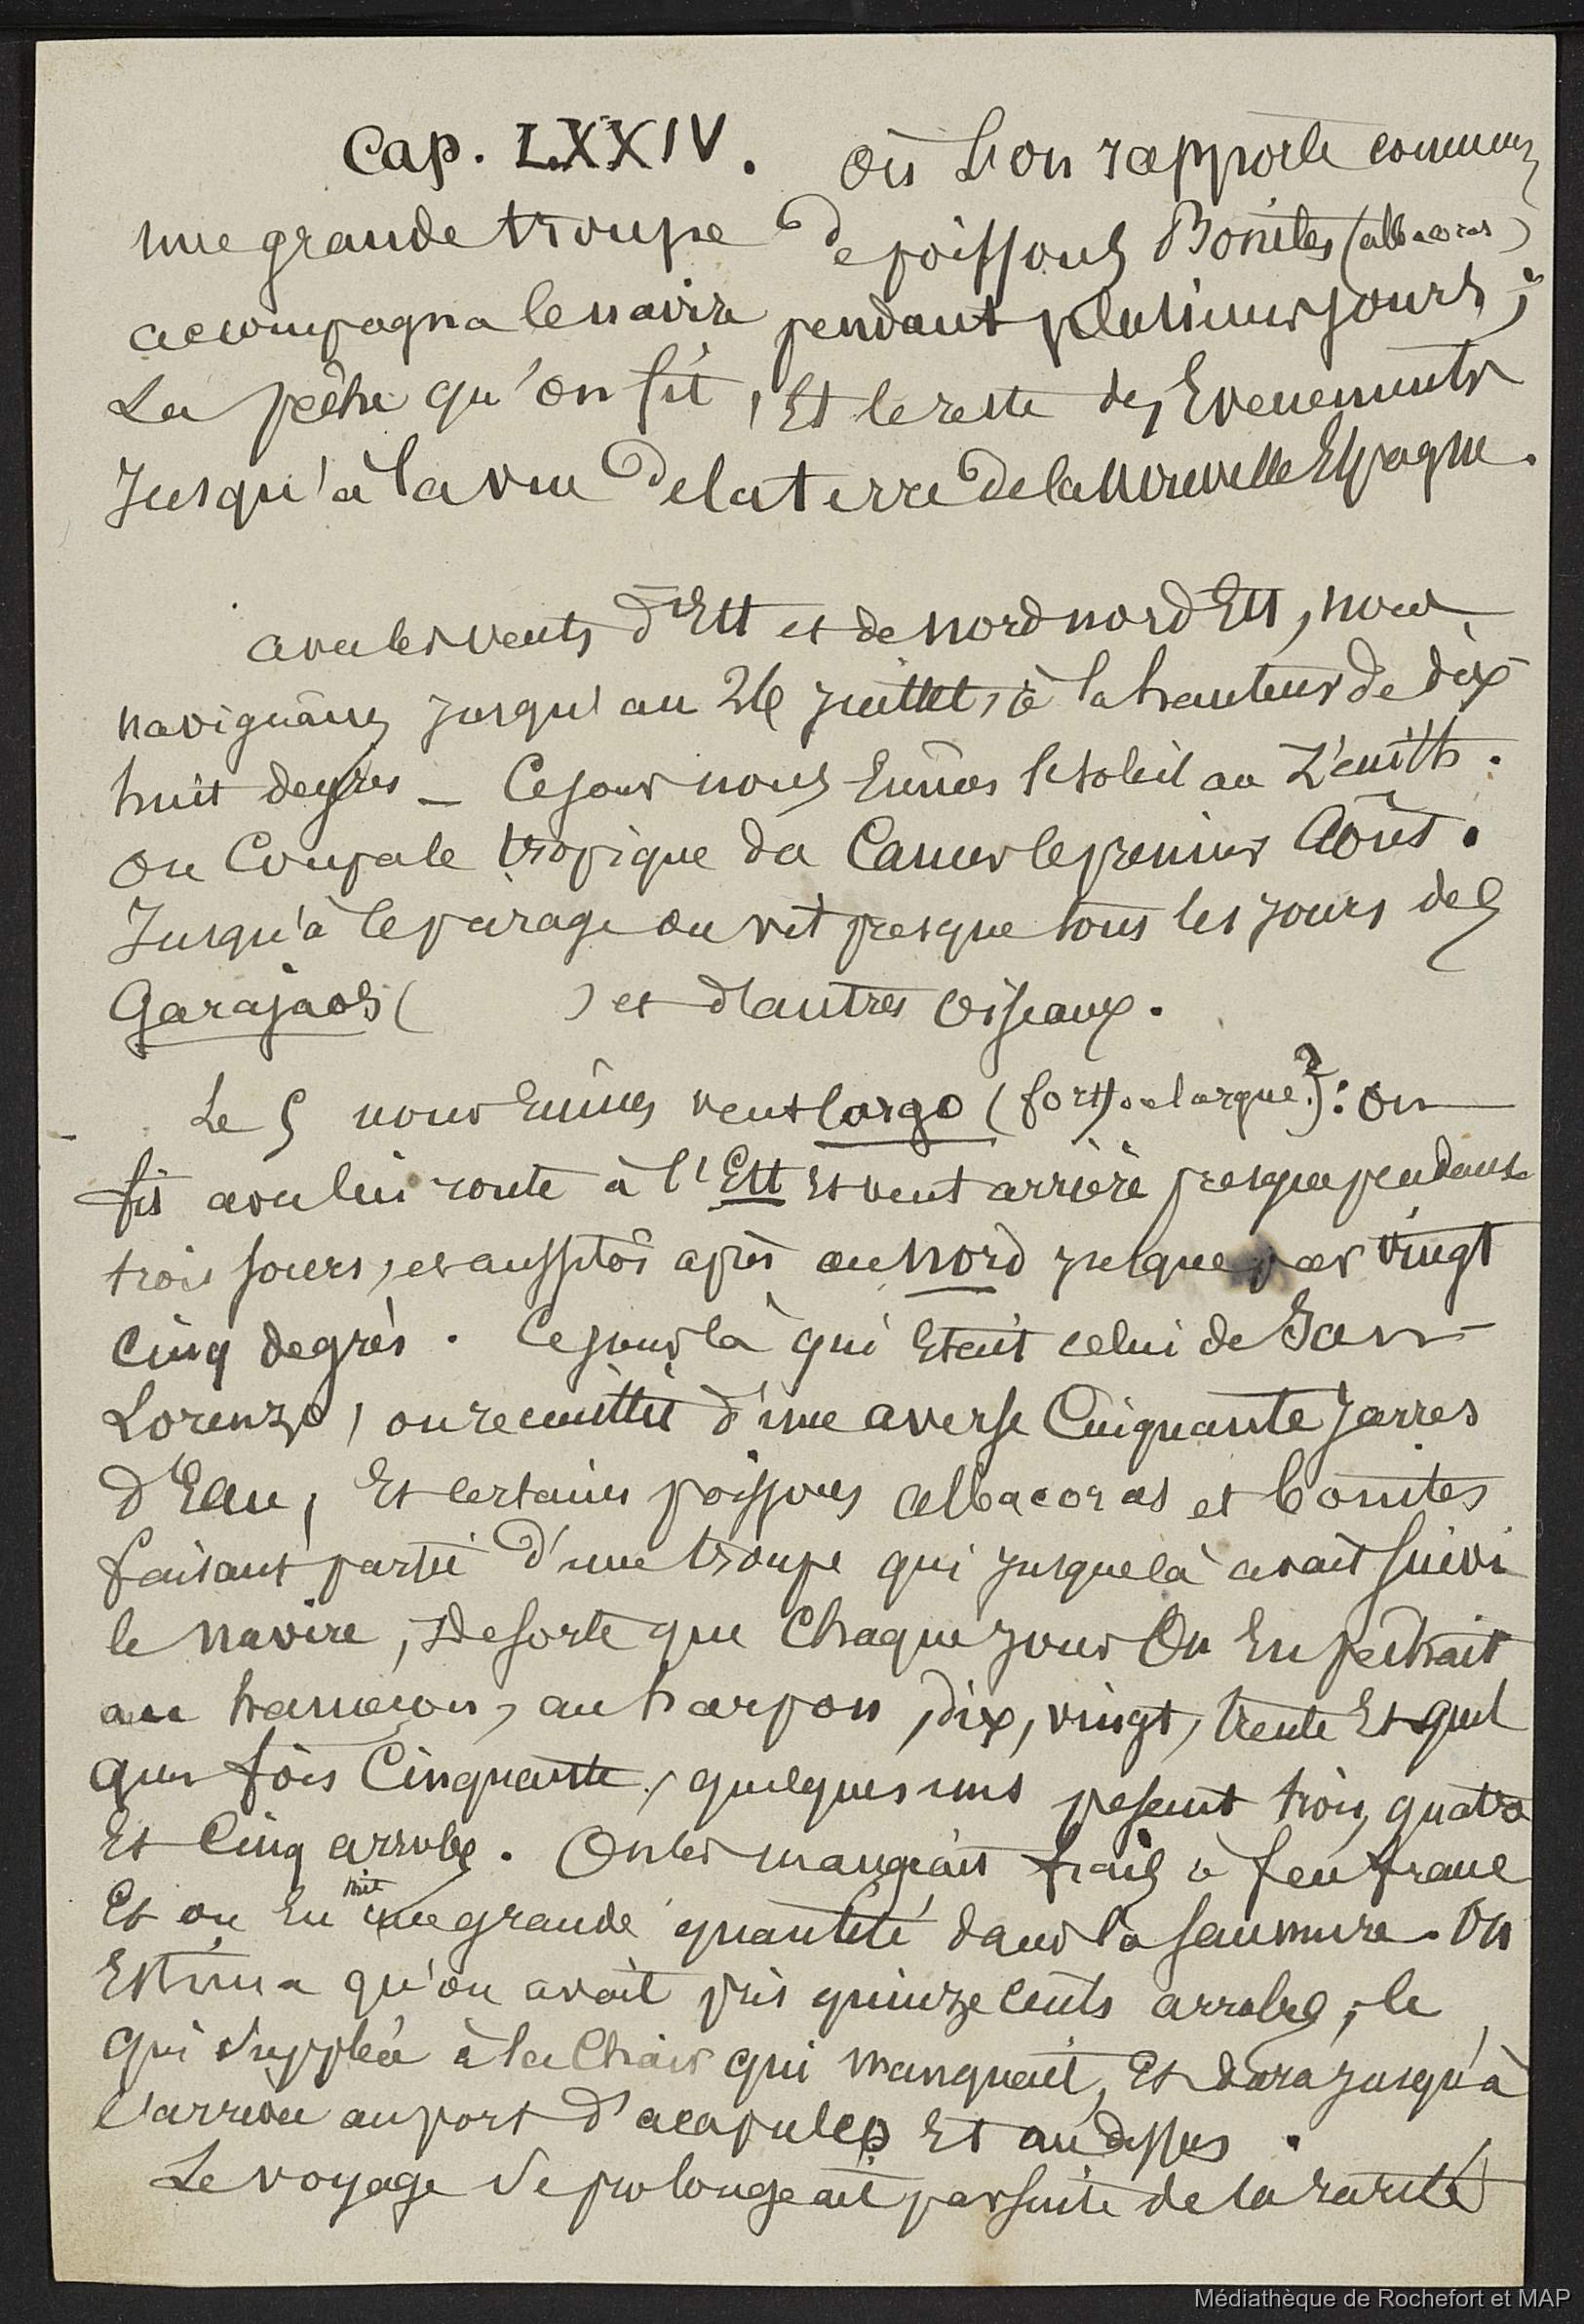 Cap. LXXIV. Où L'on rapporte comment
une grande troupe de poissons Bonites (albacoras)
accompagna le navire pendant plusieurs jours ;
La pêche qu'on fit, Et le reste des Evenements
Jusqu'à la vue de la terre de la Nouvelle Espagne.
avec les vents d'Est et de nord nord Est, nous
naviguâmes jusqu'au 26 juillet, à la hauteur de dix
huit degrés _ Ce jour nous Eumes le soleil au Zénith.
On Coupa le tropique du Cancer le premier Août.
Jusqu'à ce parage on vit presque tous les jours des
Garajaos ( ) et d'autres oiseaux.
Le 5 nous Eûmes vent largo (fort, ou largue ?) : on
fit avec lui route à l'Est Et vent arrière presque pendant
trois jours, et aussitôt après au nord jusque par vingt
Cinq degrès. Ce jour là qui Etait celui de San
Lorenzo, on recueillit d'une averse Cinquante jarres
d'Eau, Et certains poissons albacoras et bonites
faisant partie d'une troupe qui jusque là avait suivi
le navire, De sorte que Chaque jour On En pechait
au hameçon, au harpon, dix, vingt, trente Et quel
ques fois Cinquante, quelques uns pesant trois, quatre
Et Cinq arrobes. On les mangeait frais à feu franc
Et on En mit une grande quantité dans la saumure. On
Estima qu'on avait pris quinze cents arrobes, ce
qui suppléa à la Chair qui manquait, Et dura jusqu'à
l'arrivée au port d'acapulco Et au dessus.
Le voyage se prolongeait par suite de la rareté
Médiathèque de Rochefort et MAP